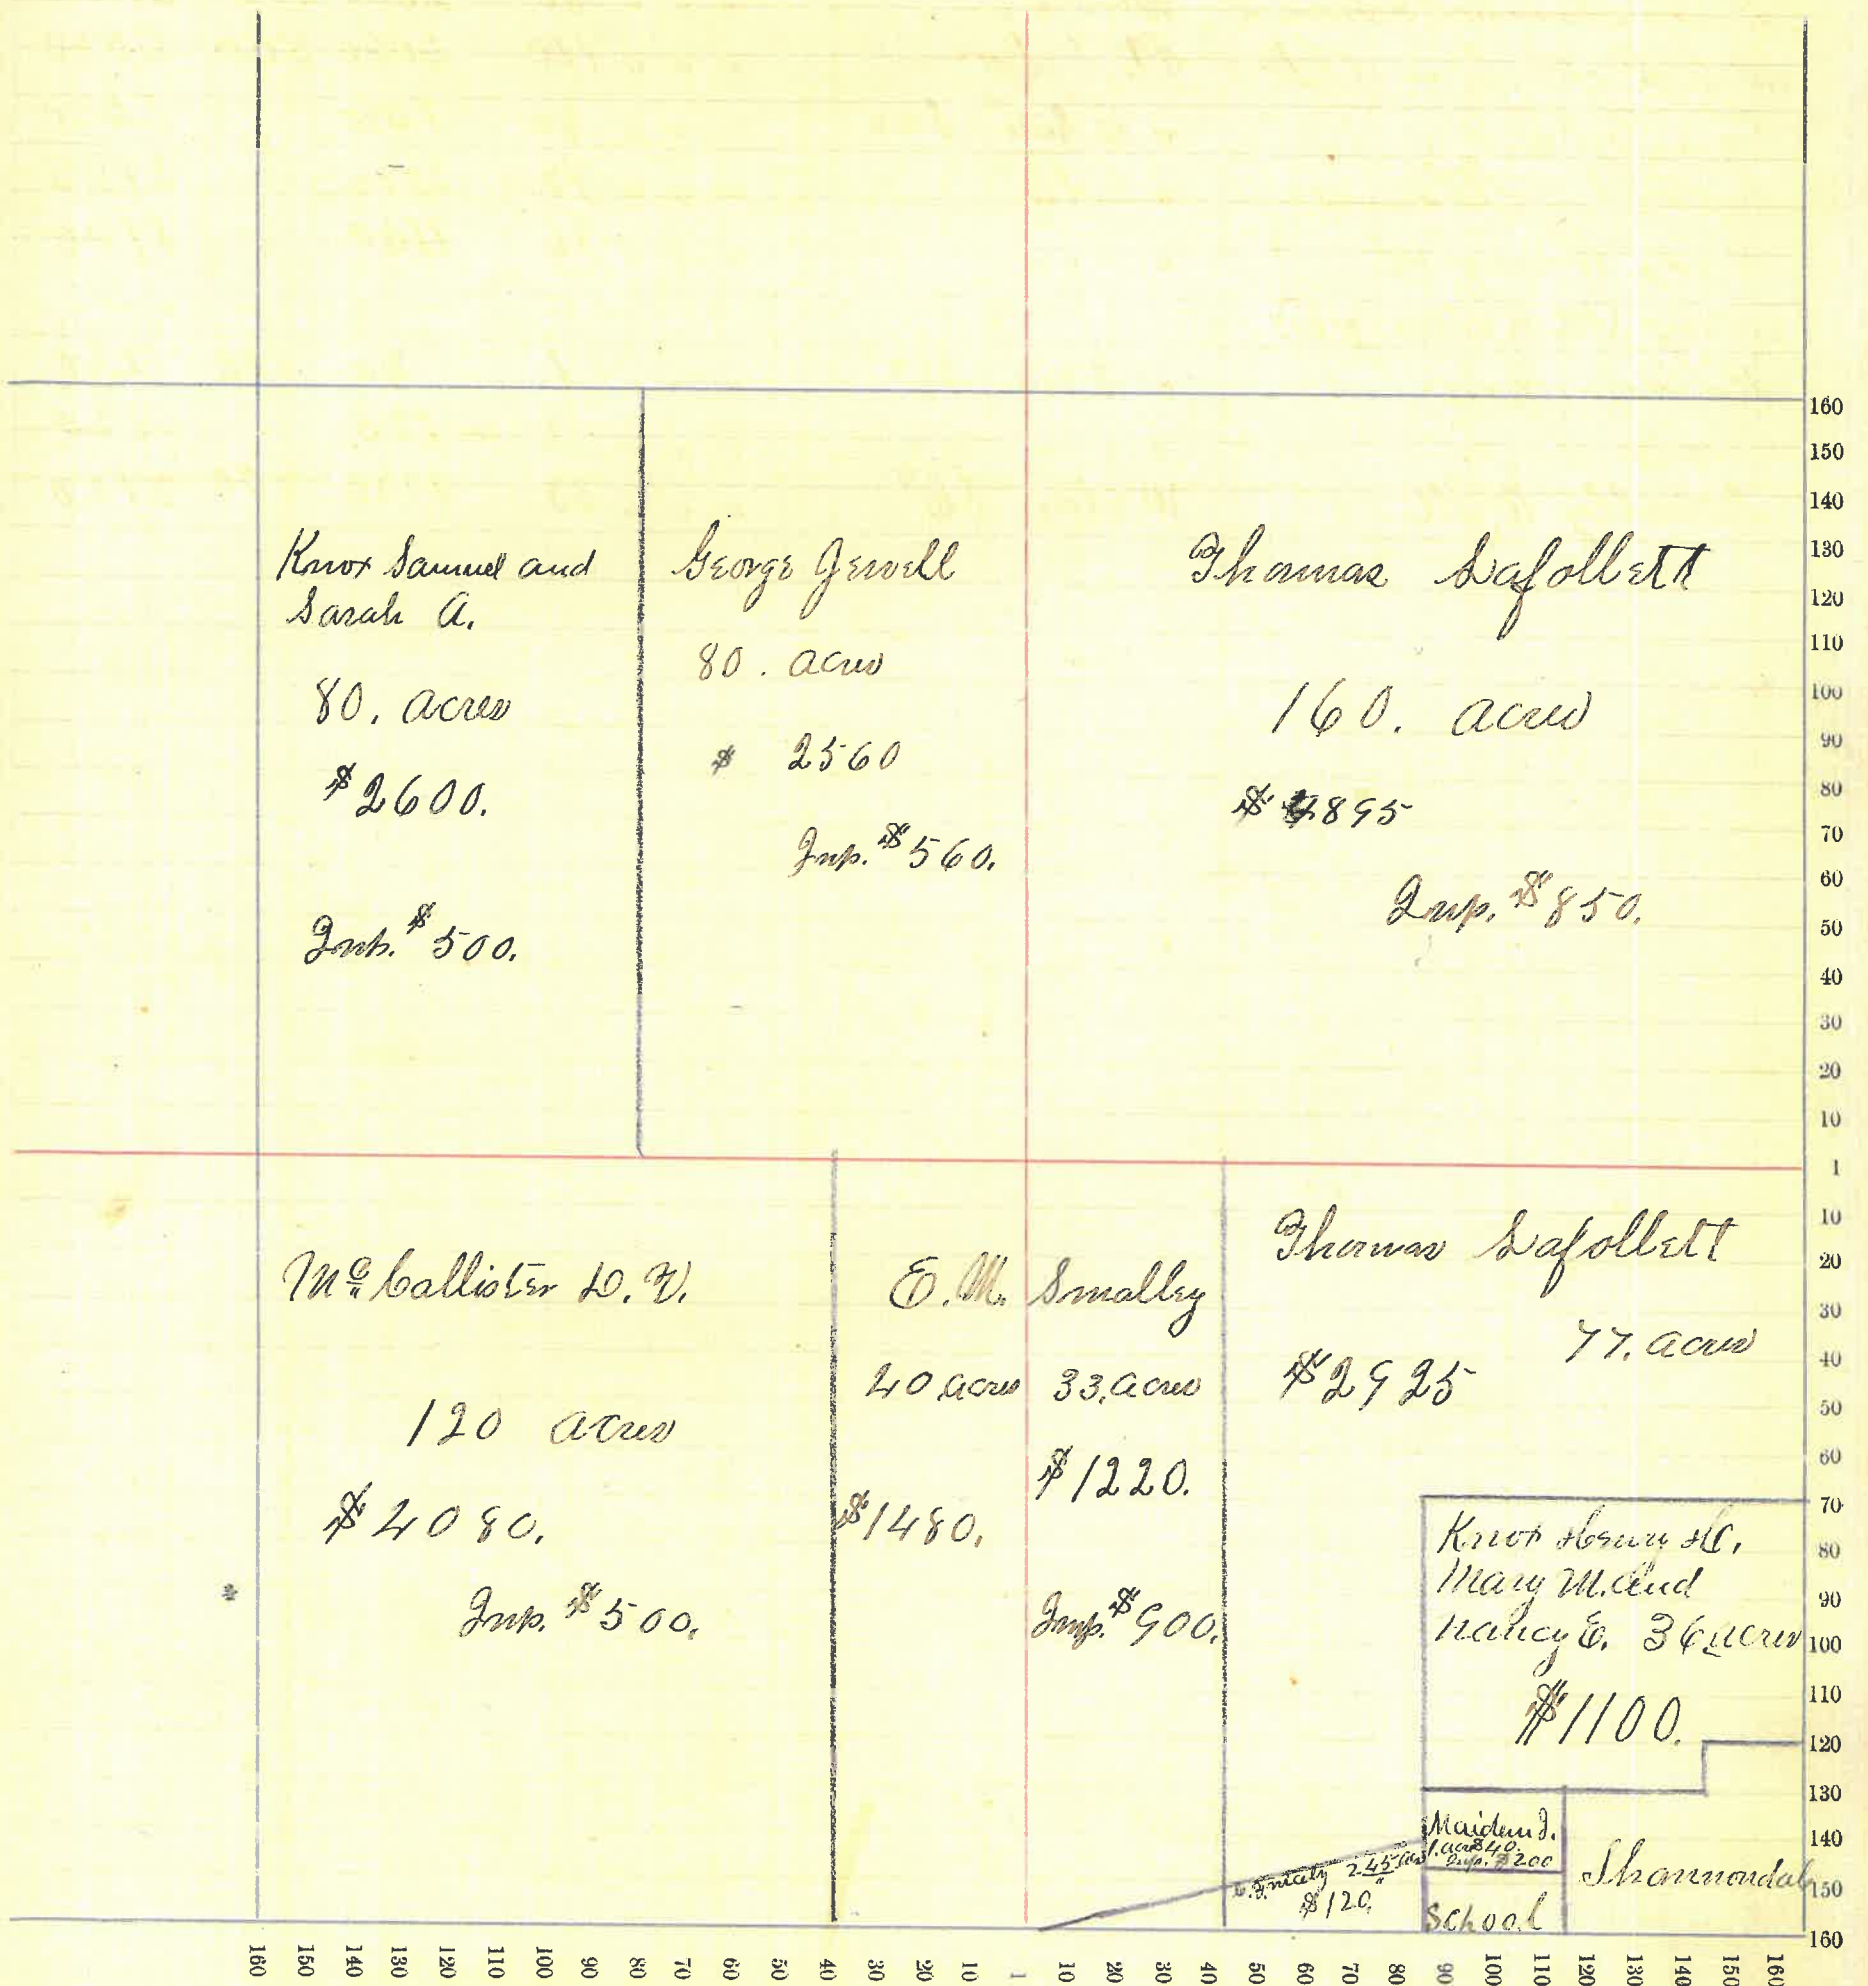 Knox Samuel and
Sarah A.
80. acres
$2600.
Imp. $500.
George Jewell
80. acres
$ 2560
Imp. $560.
Thomas Lafollett
160. acres
$ 4895
Imp. $850.
160
150
140
130
120
110
100
90
80
70
60
50
40
30
20
10
1
10
20
30
40
50
60
70
80
90
100
110
120
130
140
150
160
Mc Callister D. V.
120 acres
$4080.
Imp. $500.
E. M. Smalley
40 acres 33. acres
$1220.
$1480.
Imp. $900.
Thomas Lafollett
77. acres
$2925
Knox Henry H.
Mary M. and
Nancy E. 36 acres
$1100.
Maiden J.
1. acre $40.
Imp. $200
2.45 acres
$120.
School
Shannondale
160 150 140 130 120 110 100 90 80 70 60 50 40 30 20 10 1 10 20 30 40 50 60 70 80 90 100 110 120 130 140 150 160